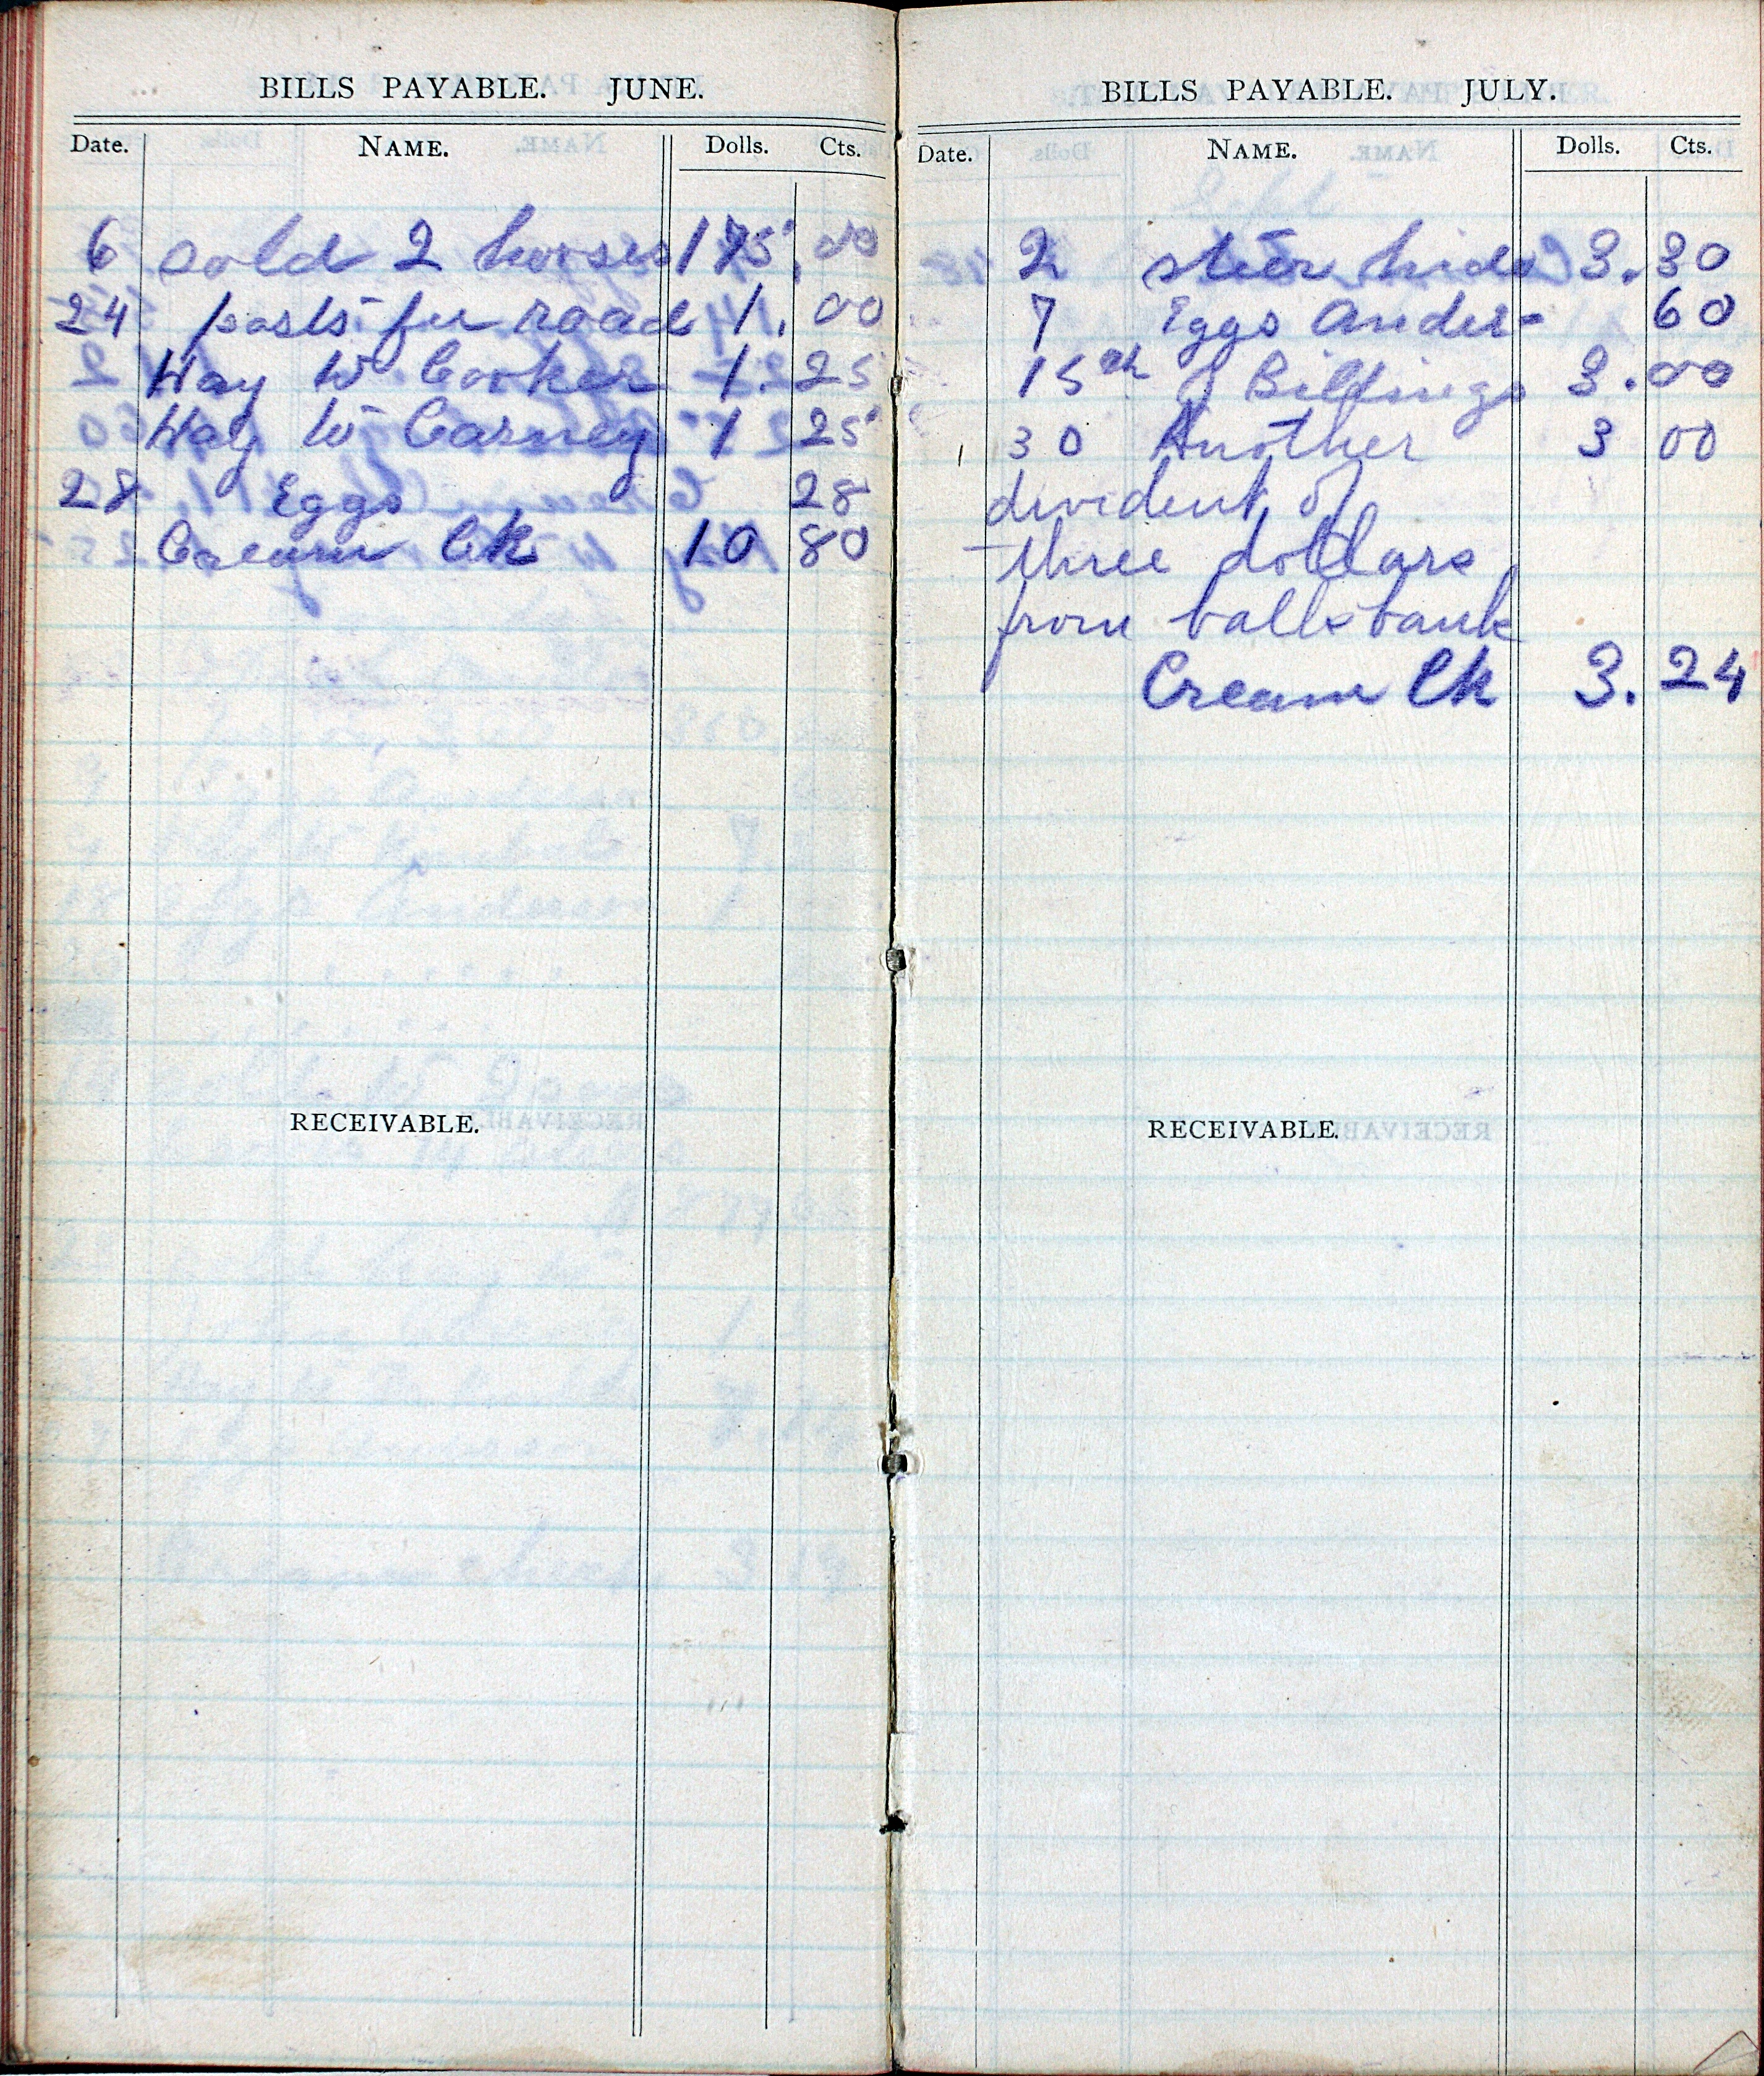 BILLS PAYABLE. JUNE.
Date. NAME. Dolls. Cts.
6 sold 2 horses 175. 00
24 posts for road 1. 00
Hay to Cooker 1. 25
Hay to Carney 1 25
28 Eggs 28
Cream Ck 10 80
RECEIVABLE.
BILLS PAYABLE. JULY.
Date. NAME. Dolls. Cts.
2 steer hide 3. 30
7 Eggs Ander- 60
15th J Billings 3. 00
30 Another 3 00
divident of
three dollars
from balls bank
Cream Ck 3. 24
RECEIVABLE.